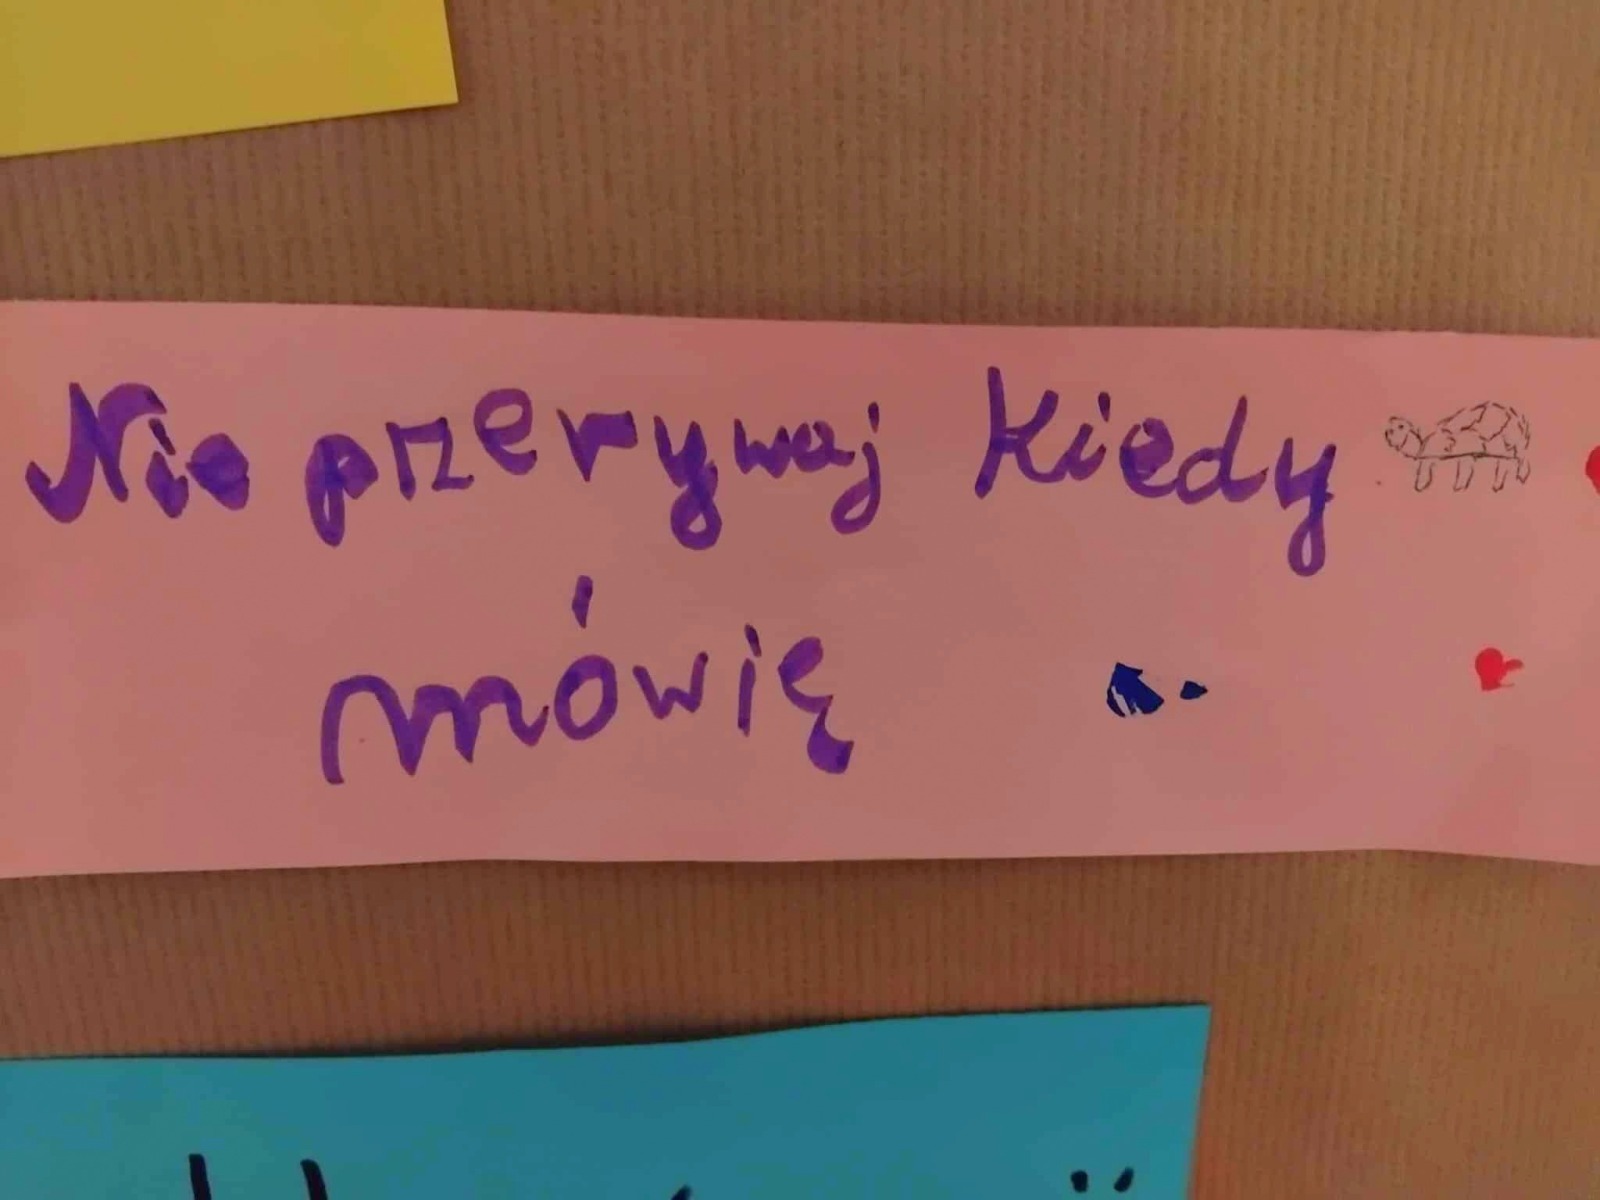 Nie przerywaj kiedy
mówię